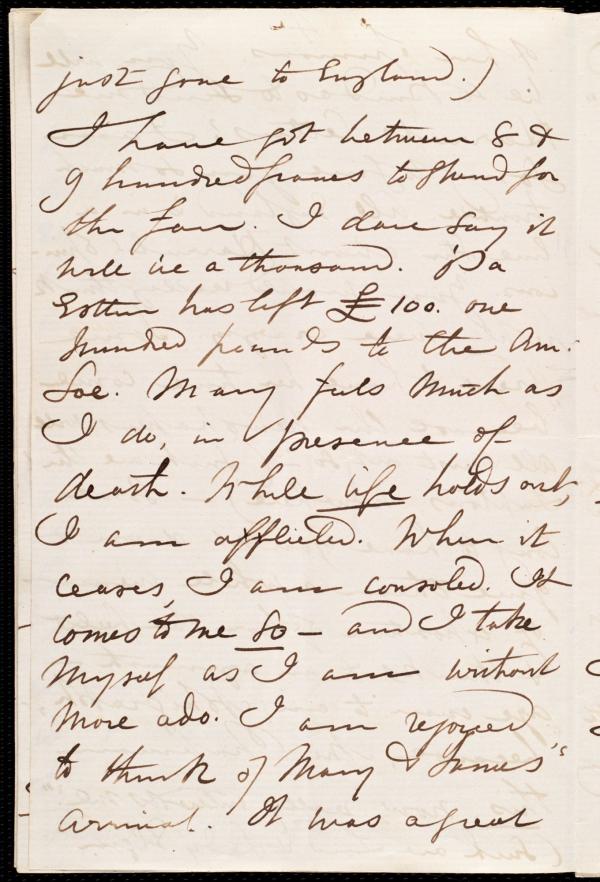 just gone to England.)
I have got between 8 &
9 hundred francs to spend for
the Fair. I dare say it
will be a thousand. Pa
Estlin has left £100. one
hundred pounds to the Am.
Soc. Mary feels much as
I do, in presence of
death. While life holds out,
I am afflicted. When it
ceases, I am consoled. It
comes to me so – and I take
myself as I am without
more ado. I am rejoiced
to think of Mary & James's
arrival. It was a great